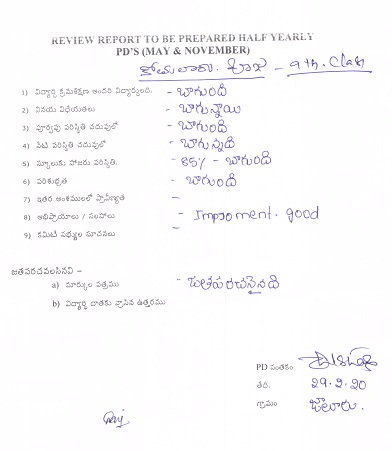 REVIEW REPORT TO BE PREPARED HALF YEARLY
PD'S (MAY & NOVEMBER)
కోయలూరు. - 9th. Class
1) విద్యార్థి క్రమశిక్షణ అందరి విద్యార్థులది. - బాగుంది
2) వినయ విధేయతలు - బాగున్నాయి
3) పూర్వపు పరిస్థితి చదువులో - బాగుంది
4) నేటి పరిస్థితి చదువులో - బాగున్నది
5) స్కూలుకు హాజరు పరిస్థితి. - 85% - బాగుంది
6) పరిశుభ్రత - బాగుంది
7) ఇతర అంశములలో ప్రావీణ్యత -
8) అభిప్రాయాలు / సలహాలు - Improment. good
9) కమిటి సభ్యుల సూచనలు
జతపరచవలసినవి –
a) మార్కుల పత్రము - జతపరచనైనది
b) విద్యార్థి దాతకు వ్రాసిన ఉత్తరము
PD సంతకం
తేది. 29.2.20
గ్రామం జాలూరు.